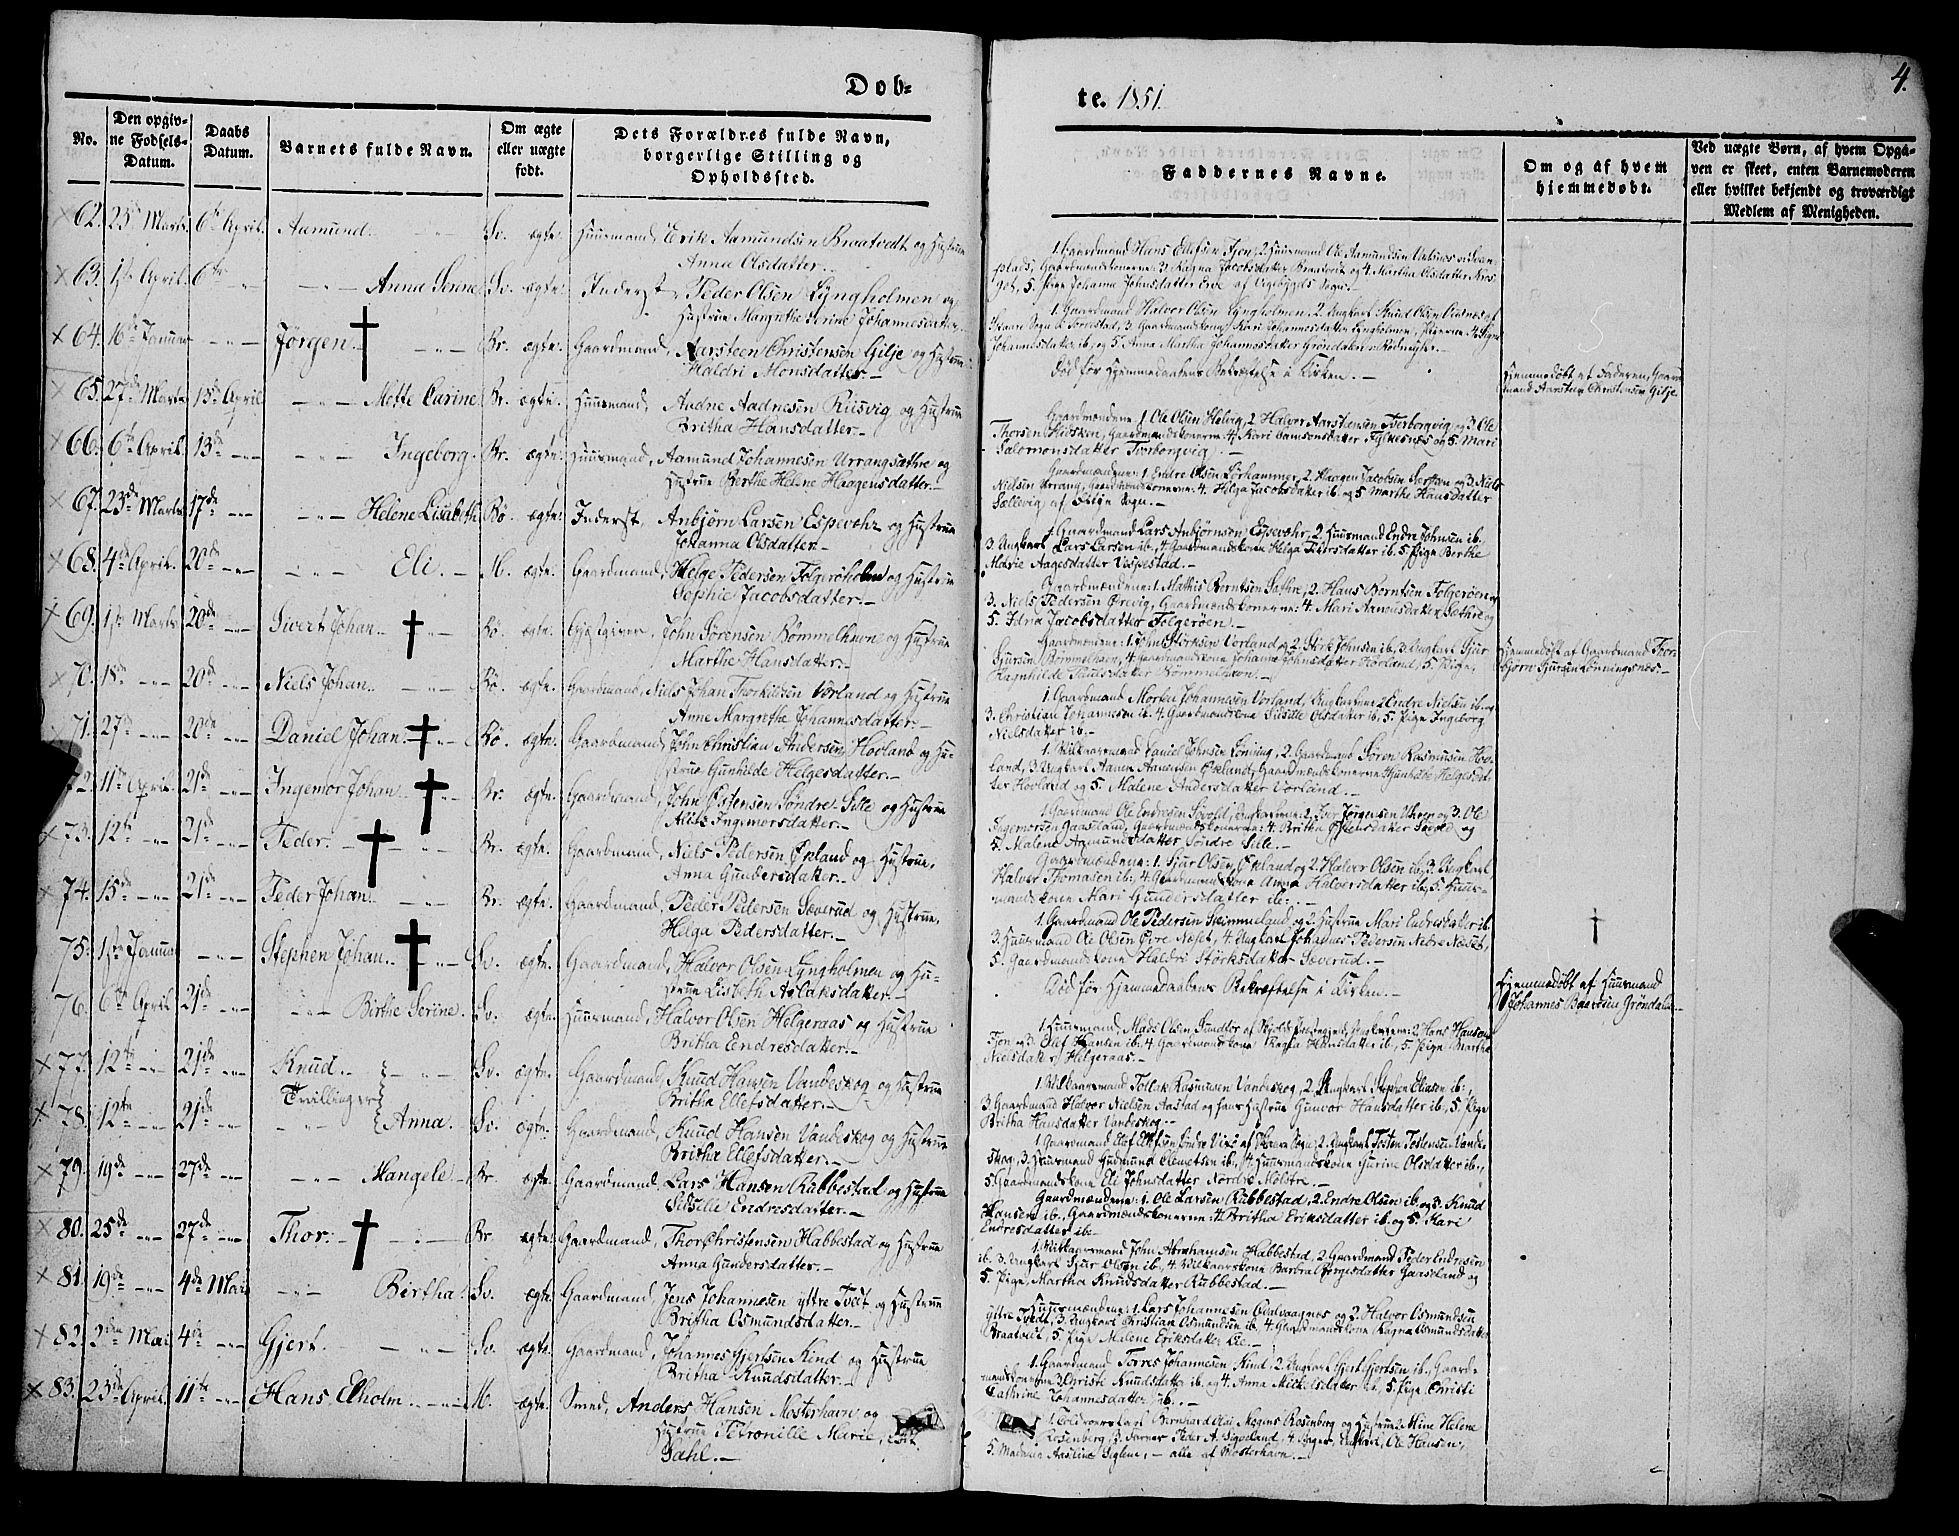 Dob-
No.
Den opgiv-
ne Fødsels-
Datum.
Daabs
Datum.
Barnets fulde Navn.
Om ægte
eller uægte
født.
Dets Forældres fulde Navn,
borgerlige Stilling og
Opholdssted.
62. 23 Marts. 6te April. Aamund. Sv. ægte. Huusmand, Erik Aamundsen Braatvedt og Hustrue
Anna Olsdatter.
63. 1ste April. 6te Anna Serine Sv. ægte. Inderst, Peder Olsen Lyngholmen og
Hustrue Margrethe Serine Johannesdatter.
64. 16de Januar Jørgen. Br. ægte. Gaardmand, Aarsteen Christensen Gilje og Hustrue
Haldri Monsdatter.
65. 27de Marts 13de April Mette Carine. Br. ægte. Huusmand, Aadne Aadnesen Riisvig og Hustrue
Britha Hansdatter.
66. 6te April. 13de Ingeborg. Br. ægte. Huusmand, Aamund Johannesen Urrangsæthre og
Hustrue Berthe Helene Haagensdatter.
67. 23de Marts 17de Helene Lisabeth Bø. ægte. Inderst, Anbjørn Larsen Espevæhr og Hustrue
Johanna Olsdatter.
68. 4de April. 20de Eli. M. ægte. Gaardmand, Helge Pedersen Folgerøholm og Hustrue
Sophie Jacobsdatter.
69. 1ste Marts 20de Sivert Johan. Bø. ægte. Gjæstgiver, John Sørensen Bømmelhavn og Hustrue
Marthe Hansdatter.
70. 18de 20de Niels Johan. Bø. ægte. Gaardmand, Niels Johan Thorkildsen Vorland og Hustrue
Anne Margrethe Johannesdatter.
71. 27de 20de Daniel Johan. Bø. ægte. Gaardmand, John Christian Andersen Hovland og Hu-
strue Gunhilde Helgesdatter.
72. 11te April. 21de Ingemor Johan. Br. ægte. Gaardmand, John Østensen Søndre Sille og Hustrue
Alits Ingemorsdatter.
73. 12te 21de Peder. Br. ægte. Gaardmand, Niels Pedersen Økland og Hustrue,
Anna Gundersdatter.
74. 15de 21de Peder Johan. Br. ægte. Gaardmand, Peder Pedersen Sæverud og Hustrue,
Helga Pedersdatter.
75. 1ste Januar Stephen Johan. Sv. ægte. Gaardmand, Halvor Olsen Lyngholmen og Hu-
strue Lisbeth Aslaksdatter.
76. 6te April. 21de Birthe Serine. Sv. ægte. Huusmand, Halvor Olsen Helgeraas og Hustrue
Britha Endresdatter.
77. 12te 21de Knud. Sv. ægte. Gaardmand, Knud Hansen Vandeskog og Hustrue
Britha Ellefsdatter.
Tvillinger
78. 12te 21de Anna. Sv. ægte. Gaardmand, Knud Hansen Vandeskog og Hustrue
Britha Ellefsdatter.
79. 19de 27de Mangele. Br. ægte. Gaardmand, Lars Hansen Rubbestad og Hustrue
Sidselle Endresdatter.
80. 25de 27de Thor. Br. ægte. Gaardmand, Thor Christensen Habbestad og Hustrue
Anna Gundersdatter.
81. 19de 4de Mai Birtha. Sv. ægte. Gaardmand, Jens Johannesen yttre Tveit og Hustrue
Britha Osmundsdatter.
82. 2den Mai 4de Gjert. Sv. ægte. Gaardmand, Johannes Gjertsen Kind og Hustrue
Britha Knudsdatter.
83. 23de April. 11te Hans Elholm. M. ægte. Smed, Anders Hansen Mosterhavn og
Hustrue Petronille Marie,
Dahl.
te. 1851.
4.
Faddernes Navne.
Om og af hvem
hjemmedøbt.
Ved uægte Børn, af hvem Opga-
ven er skeet, enten Barnemoderen
eller hvilket bekjendt og troværdigt
Medlem af Menigheden.
1. Gaardmand Hans Ellefsen Fjon, 2 Huusmand Ole Aamundsen
plads, Gaardmandskonerne: 3. Ragna Jacobsdatter Braatvedt og 4. Martha Olsdatter
5. Pige Johanna Johnsdatter
1. Gaardmand Halvor Olsen Lyngholmen, 2. Ungkarl Knud Olsen
3. Gaardmandskone Kari Johannesdatter Lyngholmen, Pigerne 4. Signe
Johannesdatter ib. og 5. Anna Martha Johannesdatter Grøndalen
Død før Hjemmedaabens Bekræftelse i Kirken.
Hjemmedøbt af Faderen, Gaard-
mand Aarsteen Christensen Gilje.
Gaardmændene 1. Ole Olsen Helvig, 2 Halvor Aarsteensen Tverborgvig, og 3. Ole
Thorsen Hidsken, Gaardmandskonerne 4. Kari Samsonsdatter Fylkesnæs og 5. Mari
Salomonsdatter Tverborgvig.
Gaardmændene: 1 Endre Olsen Sørhammer, 2 Haagen Jacobsen og 3. Niels
Nielsen Urrang, Gaardmandskonerne 4. Helga Jacobsdatter ib. og 5. Marthe Hansdatter
Sællevig af Sogn.
1. Gaardmand Lars Anbjørnsen Espevæhr, 2. Huusmand Endre Johnsen ib.
3. Ungkarl Lars Larsen ib., 4. Gaardmandskone Helga Iversdatter ib. 5. Pige Berthe
Marie Aagesdatter Vespestad.
Gaardmændene: 1 Mathis Borntsen Sæthre, 2. Hans Borntsen Folgerøen og
3. Niels Pedersen Ørevig, Gaardmandskonerne: 4. Mari Aamundsdatter Sæthre og
5. Jacobsdatter Folgerøen.
Gaardmændene: 1. John Størksen Vorland og 2. Størk Johnsen ib. 3. Ungkarl Sjur
Sjursen Bømmelhavn, 4. Gaardmandskone Johanne Johnsdatter Hovland, 5. Pige,
Ragnhilde Paulsdatter Bømmelhavn.
Hjemmedøbt af Gaardmand Thor-
bjørn Sjursen Lønningsnes.
1. Gaardmand Morten Johannesen Vorland, Ungkarlene 2 Endre Nielsen ib. og
3. Christian Johannesen ib. 4. Gaardmandskone Sidselle Olsdatter ib., 5. Pige Ingeborg
Nielsdatter ib.
1. Vilkaarsmand Daniel Johnsen Lønning, 2. Gaardmand Søren Rasmussen Hov-
land, 3. Ungkarl Aanen Aanensen Økland, Gaardmandskonerne Gunhilde Helgesdat-
ter Hovland og 5. Malene Andersdatter Vorland.
1. Gaardmand Ole Endresen Søvold, Ungkarlene: 2. Iver Jørgensen og 3. Ole
Ingemorsen Gaasland, Gaardmandskonerne: 4. Britha Østensdatter Søvold og
5. Malene Aamundsdatter Søndre Sille.
Gaardmændene: 1. Sjur Olsen Økland og 2. Halvor Olsen ib., 3. Ungkarl
Halvor Thomasen ib., 4. Gaardmandskone Anna Halvorsdatter ib., 5. Huus-
mandskone Mari Gundersdatter ib.
1. Gaardmand Ole Pedersen Skimmeland og 2. Hustrue Mari Endresdatter ib.
3. Huusmand Ole Olsen Øvre Næset, 4. Ungkarl Johannes Pedersen Nedre Næset,
5. Gaardmandskone Haldri Størksdatter Sæverud.
Død før Hjemmedaabens Bekræftelse i Kirken.
Hjemmedøbt af Huusmand
Johannes Baardsen Grøndalen.
1. Huusmand, Mads Olsen af Skjolds Præstegjeld, Ungkarlene: 2. Hans Hansen
Fjon og 3. Olef Hansen ib. 4. Gaardmandskone Ragna Hansdatter ib., 5. Pige Marthe
Nielsdatter Helgeraas.
1. Vilkaarsmand Tollak Rasmusen Vandeskog, 2. Ungkarl Stephen Eliasen ib.
3. Gaardmand Halvor Nielsen Aastad og hans Hustrue Gunvor Hansdatter ib., 5. Pige
Britha Hansdatter Vandeskog.
1. Gaardmand Elef Ellefsen Søndre af Sogn, 2. Ungkarl Tosten Tostensen Vande-
skog, 3. Huusmand Gudmund Clemetsen ib., 4. Huusmandskone Gurine Olsdatter ib.,
5. Gaardmandskone Eli Johnsdatter Nordre Molstre.
Gaardmændene: 1. Ole Larsen Rubbestad, 2. Endre Olsen ib. og 3. Knud
Hansen ib., Gaardmandskonerne 4. Britha Eriksdatter ib. og 5. Kari
Endresdatter ib.
1. Vilkaarsmand John Abrahamsen Habbestad, 2. Gaardmand Peder Endresen
ib. 3. Ungkarl Sjur Olsen ib., 4. Vilkaarskone Barbral Børgesdatter Gaasland og
5. Pige, Martha Knudsdatter Rubbestad.
Huusmændene: 1. Lars Johannesen Qvalvaagnes og 2. Halvor Osmundsen
yttre Tvedt, 3. Ungkarl Christian Osmundsen ib., 4. Gaardmandskone Ragna Osmundsdatter
Braatvedt, 5. Pige Malene Eriksdatter Lie.
1. Gaardmand Torres Johannesen Kind, 2. Ungkarl Gjert Gjertsen ib. Gaard-
mandskonerne 3. Christi Knudsdatter ib. og 4. Anna Mickelsdatter ib., 5. Pige Christi
Cathrine Johannesdatter ib.
1. Bernhard Olai Magens Rosenberg og Hustrue: 2 Mine Helene
Rosenberg, 3. Farver Peder A. Sigveland, 4. Bager, Ungkarl, Ole Hansen,
5. Madame Aaseline, alle af Mosterhavn.